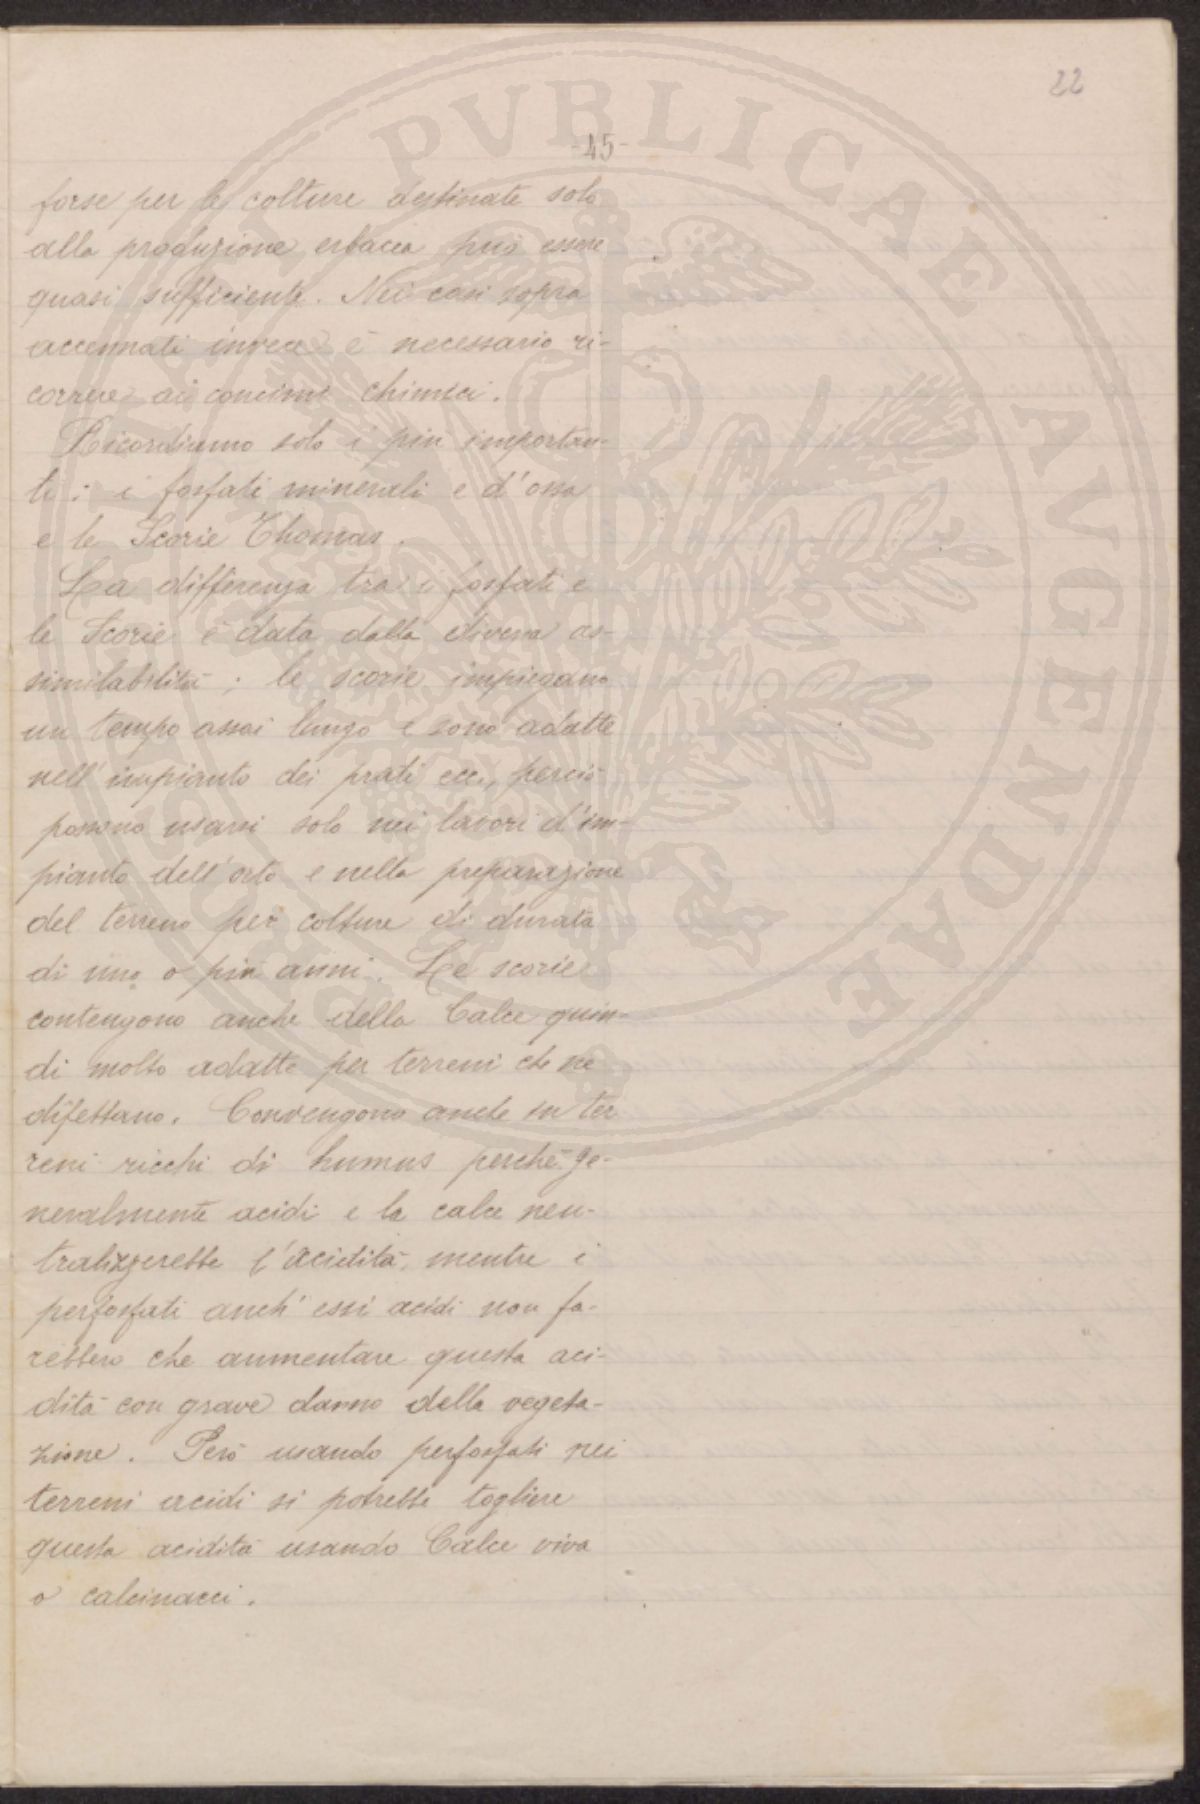 22
-45-
forse per le colture destinate solo
alla produzione erbacea può essere
quasi sufficiente. Nei casi sopra
accennati invece è necessario ri-
correre ai concimi chimici.
Ricordiamo solo i più importan-
ti: i fosfati minerali e d'ossa
e le Scorie Thomas.
La differenza tra i fosfati e
le Scorie è data dalla diversa as-
similabilità; le scorie impiegano
un tempo assai lungo e sono adatte
nell'impianto dei prati ecc., perciò
possono usarsi solo nei lavori d'im-
pianto dell'orto e nella preparazione
del terreno per colture di durata
di uno o più anni. Le scorie
contengono anche della Calce quin-
di molto adatte per terreni che ne
difettano. Convengono anche in ter
reni ricchi di humus perchè ge-
neralmente acidi e la calce neu-
tralizzerebbe l'acidità, mentre i
perfosfati anch'essi acidi non fa-
rebbero che aumentare questa aci-
dità con grave danno della vegeta-
zione. Però usando perfosfati nei
terreni acidi si potrebbe togliere
questa acidità usando Calce viva
o calcinacci.
PVBLICAE AVGENDAE